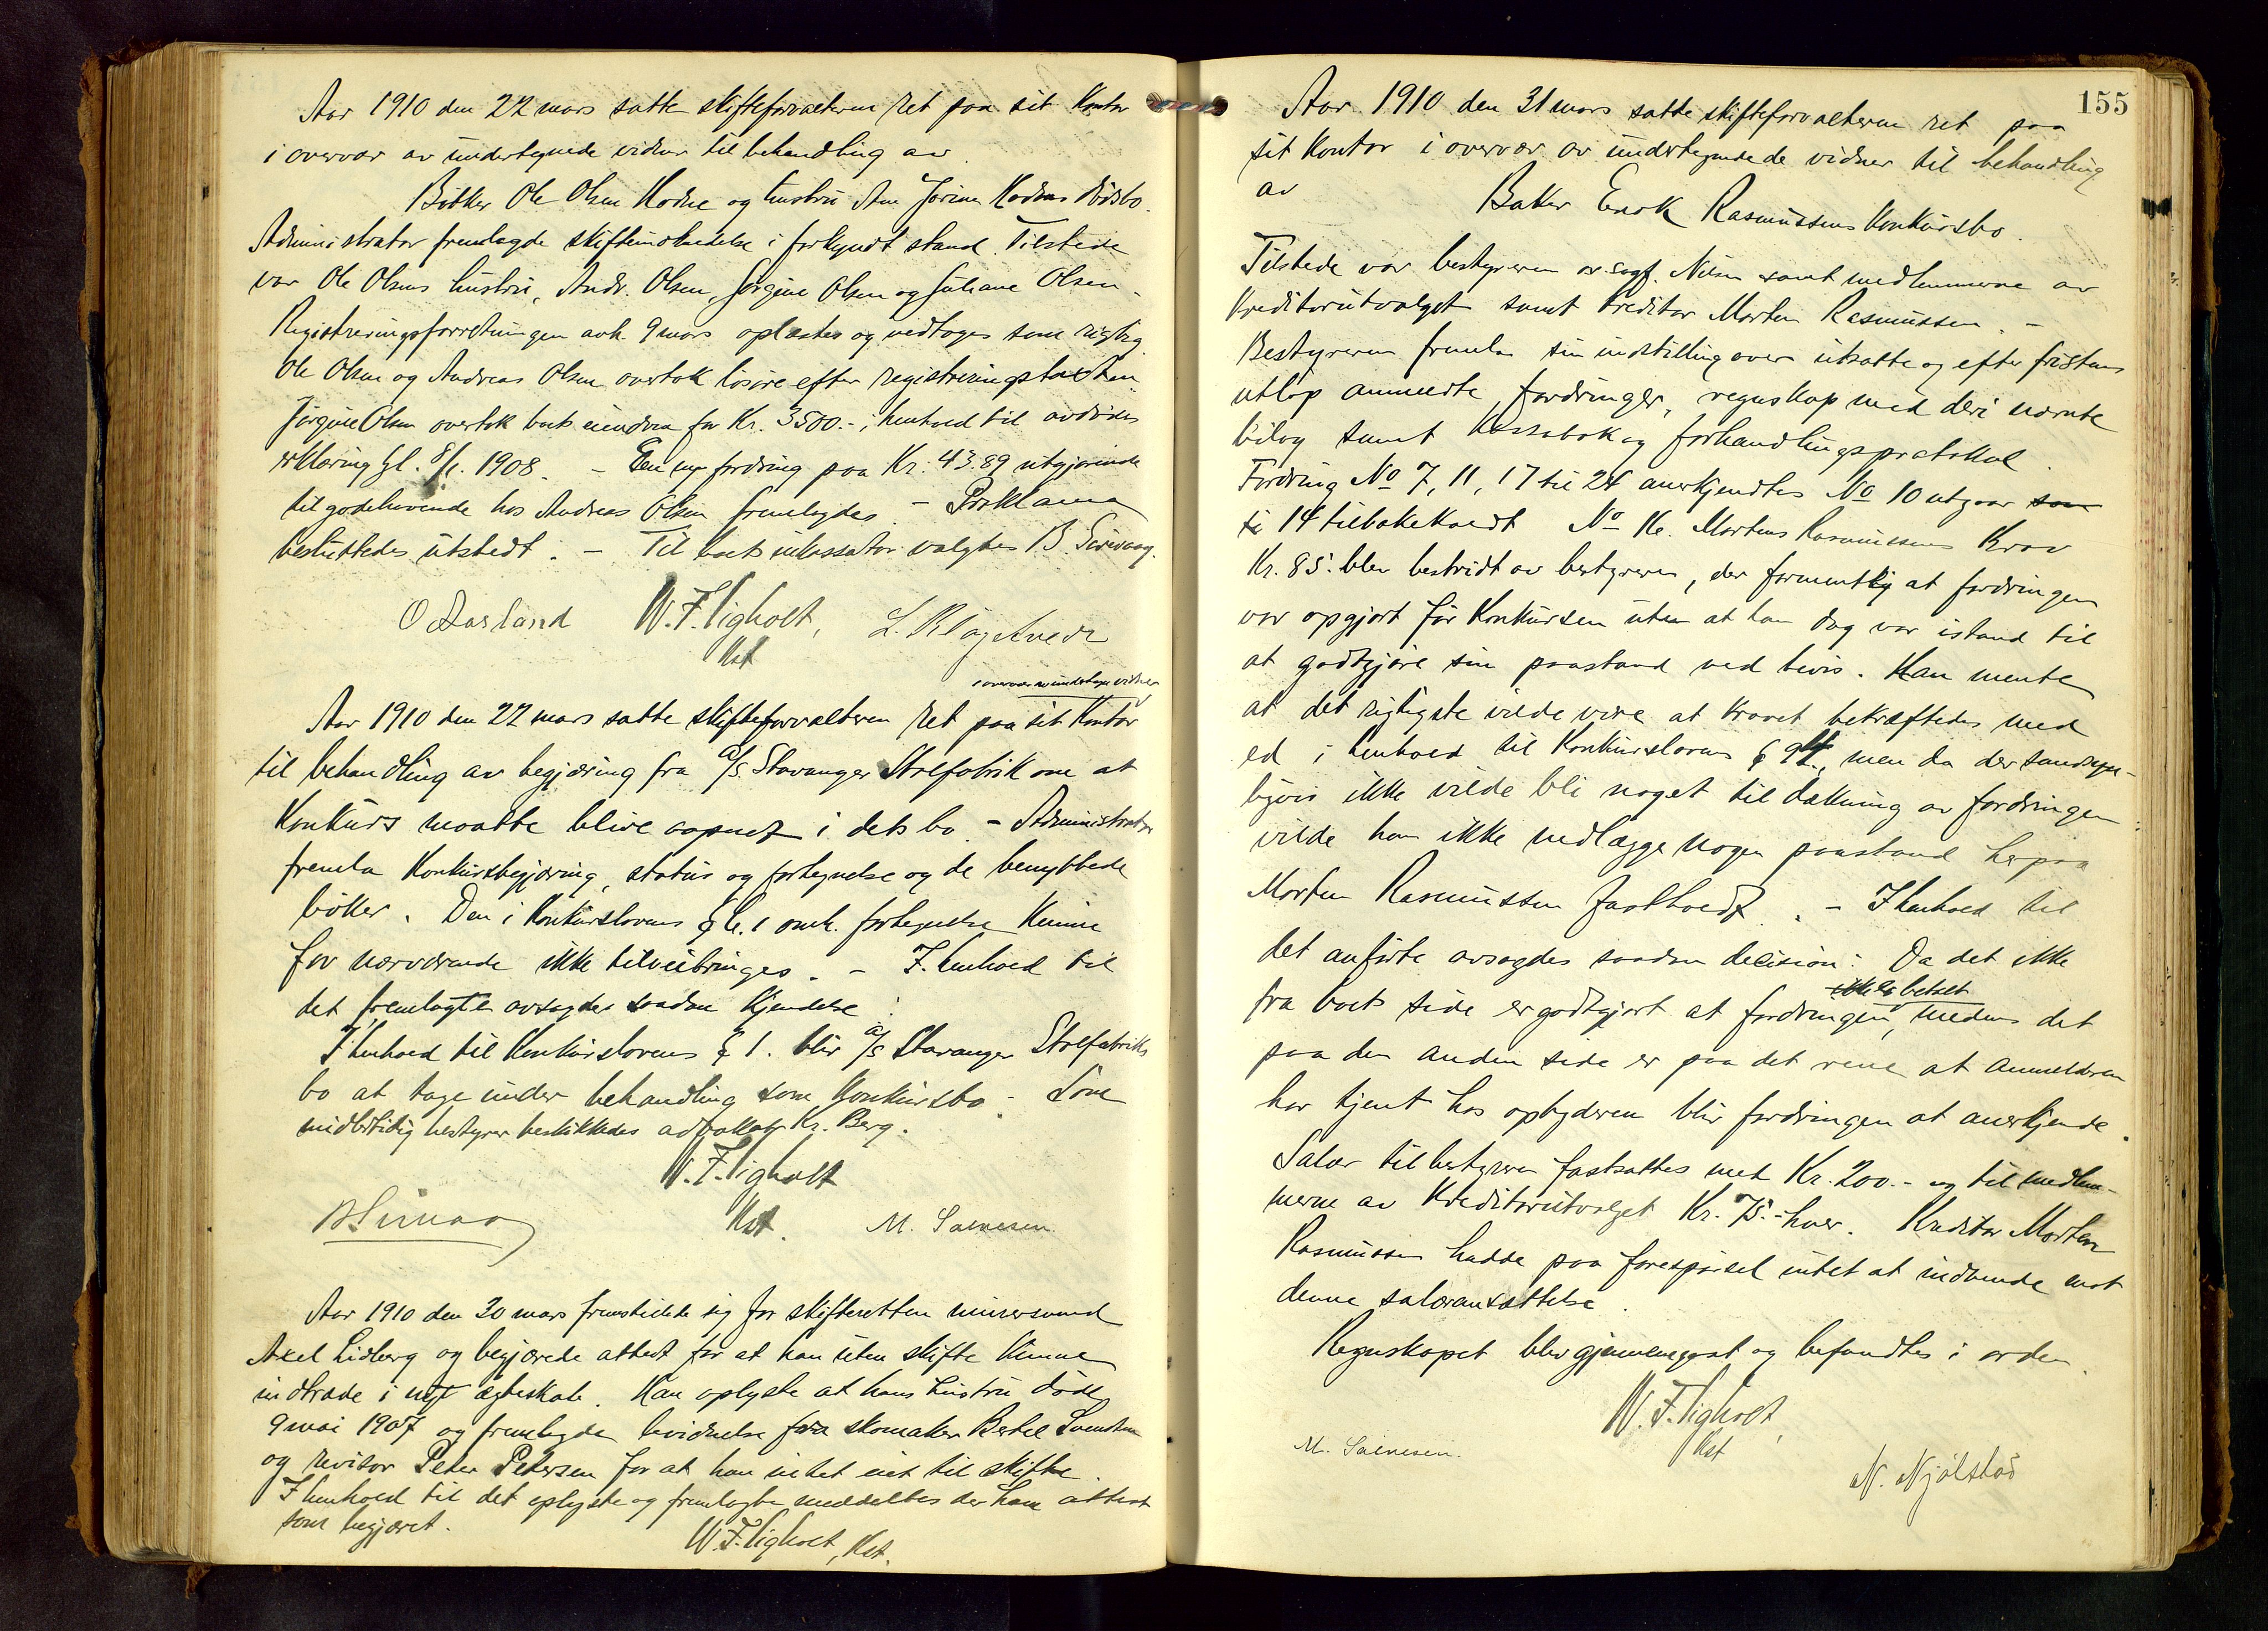 Aar 1910 den 22 mars satte skifteforvalteren ret paa sit Kontor
i overvær av undertegnede vidner til behandling av
Bøtker Ole Olsen Hodne og hustru Ane Jorine Hodnes dødsbo.
Administrator fremlagde skifteindkaldelse i forkyndt stand. Tilstede
var Ole Olsens hustru, Andr. Olsen, Jørgine Olsen og Juliane Olsen.
Registreringsforretningen avh. 9 mars oplæstes og vedtoges som rigtig
Ole Olsen og Andreas Olsen overtok løsøre efter registreringstaksten.
Jørgine Olsen overtok boets eiendom for Kr. 3500.- i henhold til avdødes
erklæring gl. 8/1. 1908. - En ny fordring paa Kr. 43.89 utgjørende
tilgodehavende hos Andreas Olsen fremlagdes. - Proklama
besluttedes utstedt. - Til boets inkassator valgtes B. Sirevaag.
O Aasland W. F. Vigholt, L. Klagetvedt
Kst
i overvær av undertegn vidner
Aar 1910 den 22 mars satte skifteforvalteren ret paa sit Kontor
til behandling av begjæring fra A/S. Stavanger Stolfabrik om at
Konkurs maatte blive aapnet i dets bo. - Administrator
fremla Konkursbegjæring, status og fortegnelse og de benyttede
bøker. Den i Konkurslovens § 6.1 omh. fortegnelse Kunne
for nærværende ikke tilveiebringes. - I henhold til
det fremlagte avsagdes saadan Kjendelse:
I henhold til Konkurslovens § 1. blir A/S Stavanger Stolfabriks
bo at tage under behandling som Konkursbo. - Som
midlertidig bestyrer beskikkedes advokat Kr. Berg.
W. F. Vigholt
Kst. M. Salvesen
Aar 1910 den 30 mars fremstillede sig for skifteretten murersvend
Axel Lidberg og begjærede attest for at han uten skifte Kunne
indtræde i nyt ægteskab. Han oplyste at hans hustru døde
9 mai 1907 og fremlagde bevidnelse fra skomaker Bertel Svendsen
og revisor Peter Petersen for at han intet eiet til skifte.
I henhold til det oplyste og fremlagte meddeltes der ham attest
som begjæret.
W. F. Vigholt, Kst.
155
Aar 1910 den 31 mars satte skifteforvalteren ret paa
sit Kontor i overvær av undertegnede vidner til behandling
av Baker Enok Rasmussens Konkursbo.
Tilstede var bestyreren o.r.sagf. Nilsen samt medlemmerne av
Kreditorutvalget samt Kreditor Morten Rasmussen. -
Bestyreren fremla sin indstilling over utsatte og efter fristens
utløp anmeldte fordringer, regnskap med deri nævnte
bilag samt Kassabok og forhandlingsprotokol.
Fordring No 7, 11, 17 til 24 anerkjendtes No 10 utgaar som
14 tilbakekaldt No 16. Mortens Rasmussens Krav
Kr. 85. blev bestridt av bestyreren, der formentlig at fordringen
var opgjort før Konkursen uten at han dog var istand til
at godtgjøre sin paastand ved bevis. Han mente
at det rigtigste vilde være at Kravet bekræftedes med
ed i henhold til Konkurslovens § 94, men da der sandsyn-
ligvis ikke vilde bli noget til dækning av fordringen
vilde han ikke nedlægge nogen paastand herpaa
Morten Rasmussen fastholdt. - I henhold til
det anførte avsagdes saadan decision: Da det ikke
ikke er betalt
fra boets side er godtgjort at fordringen, medens det
paa den anden side er paa det rene at anmelderen
har tjent hos opbyderen blir fordringen at anerkjende.
Salær til bestyreren fastsattes med Kr. 200.- og til medlem-
merne av Kreditorutvalget Kr. 75.- hver. Kreditor Morten
Rasmussen hadde paa forespørsel intet at indvende mot
denne salæransættelse.
Regnskapet blev gjennemgaat og befandtes i orden.
W. F. Vigholt,
M. Salvesen. Kst
N. Njølstad